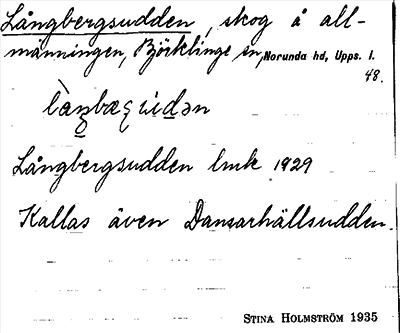 Långbergsudden, skog å all-
männingen, Björklinge sn, Norunda hd, Upps. l.
48.
Långbergsudden lmk 1929
Kallas även Dansarhällsudden.
STINA HOLMSTRÖM 1935